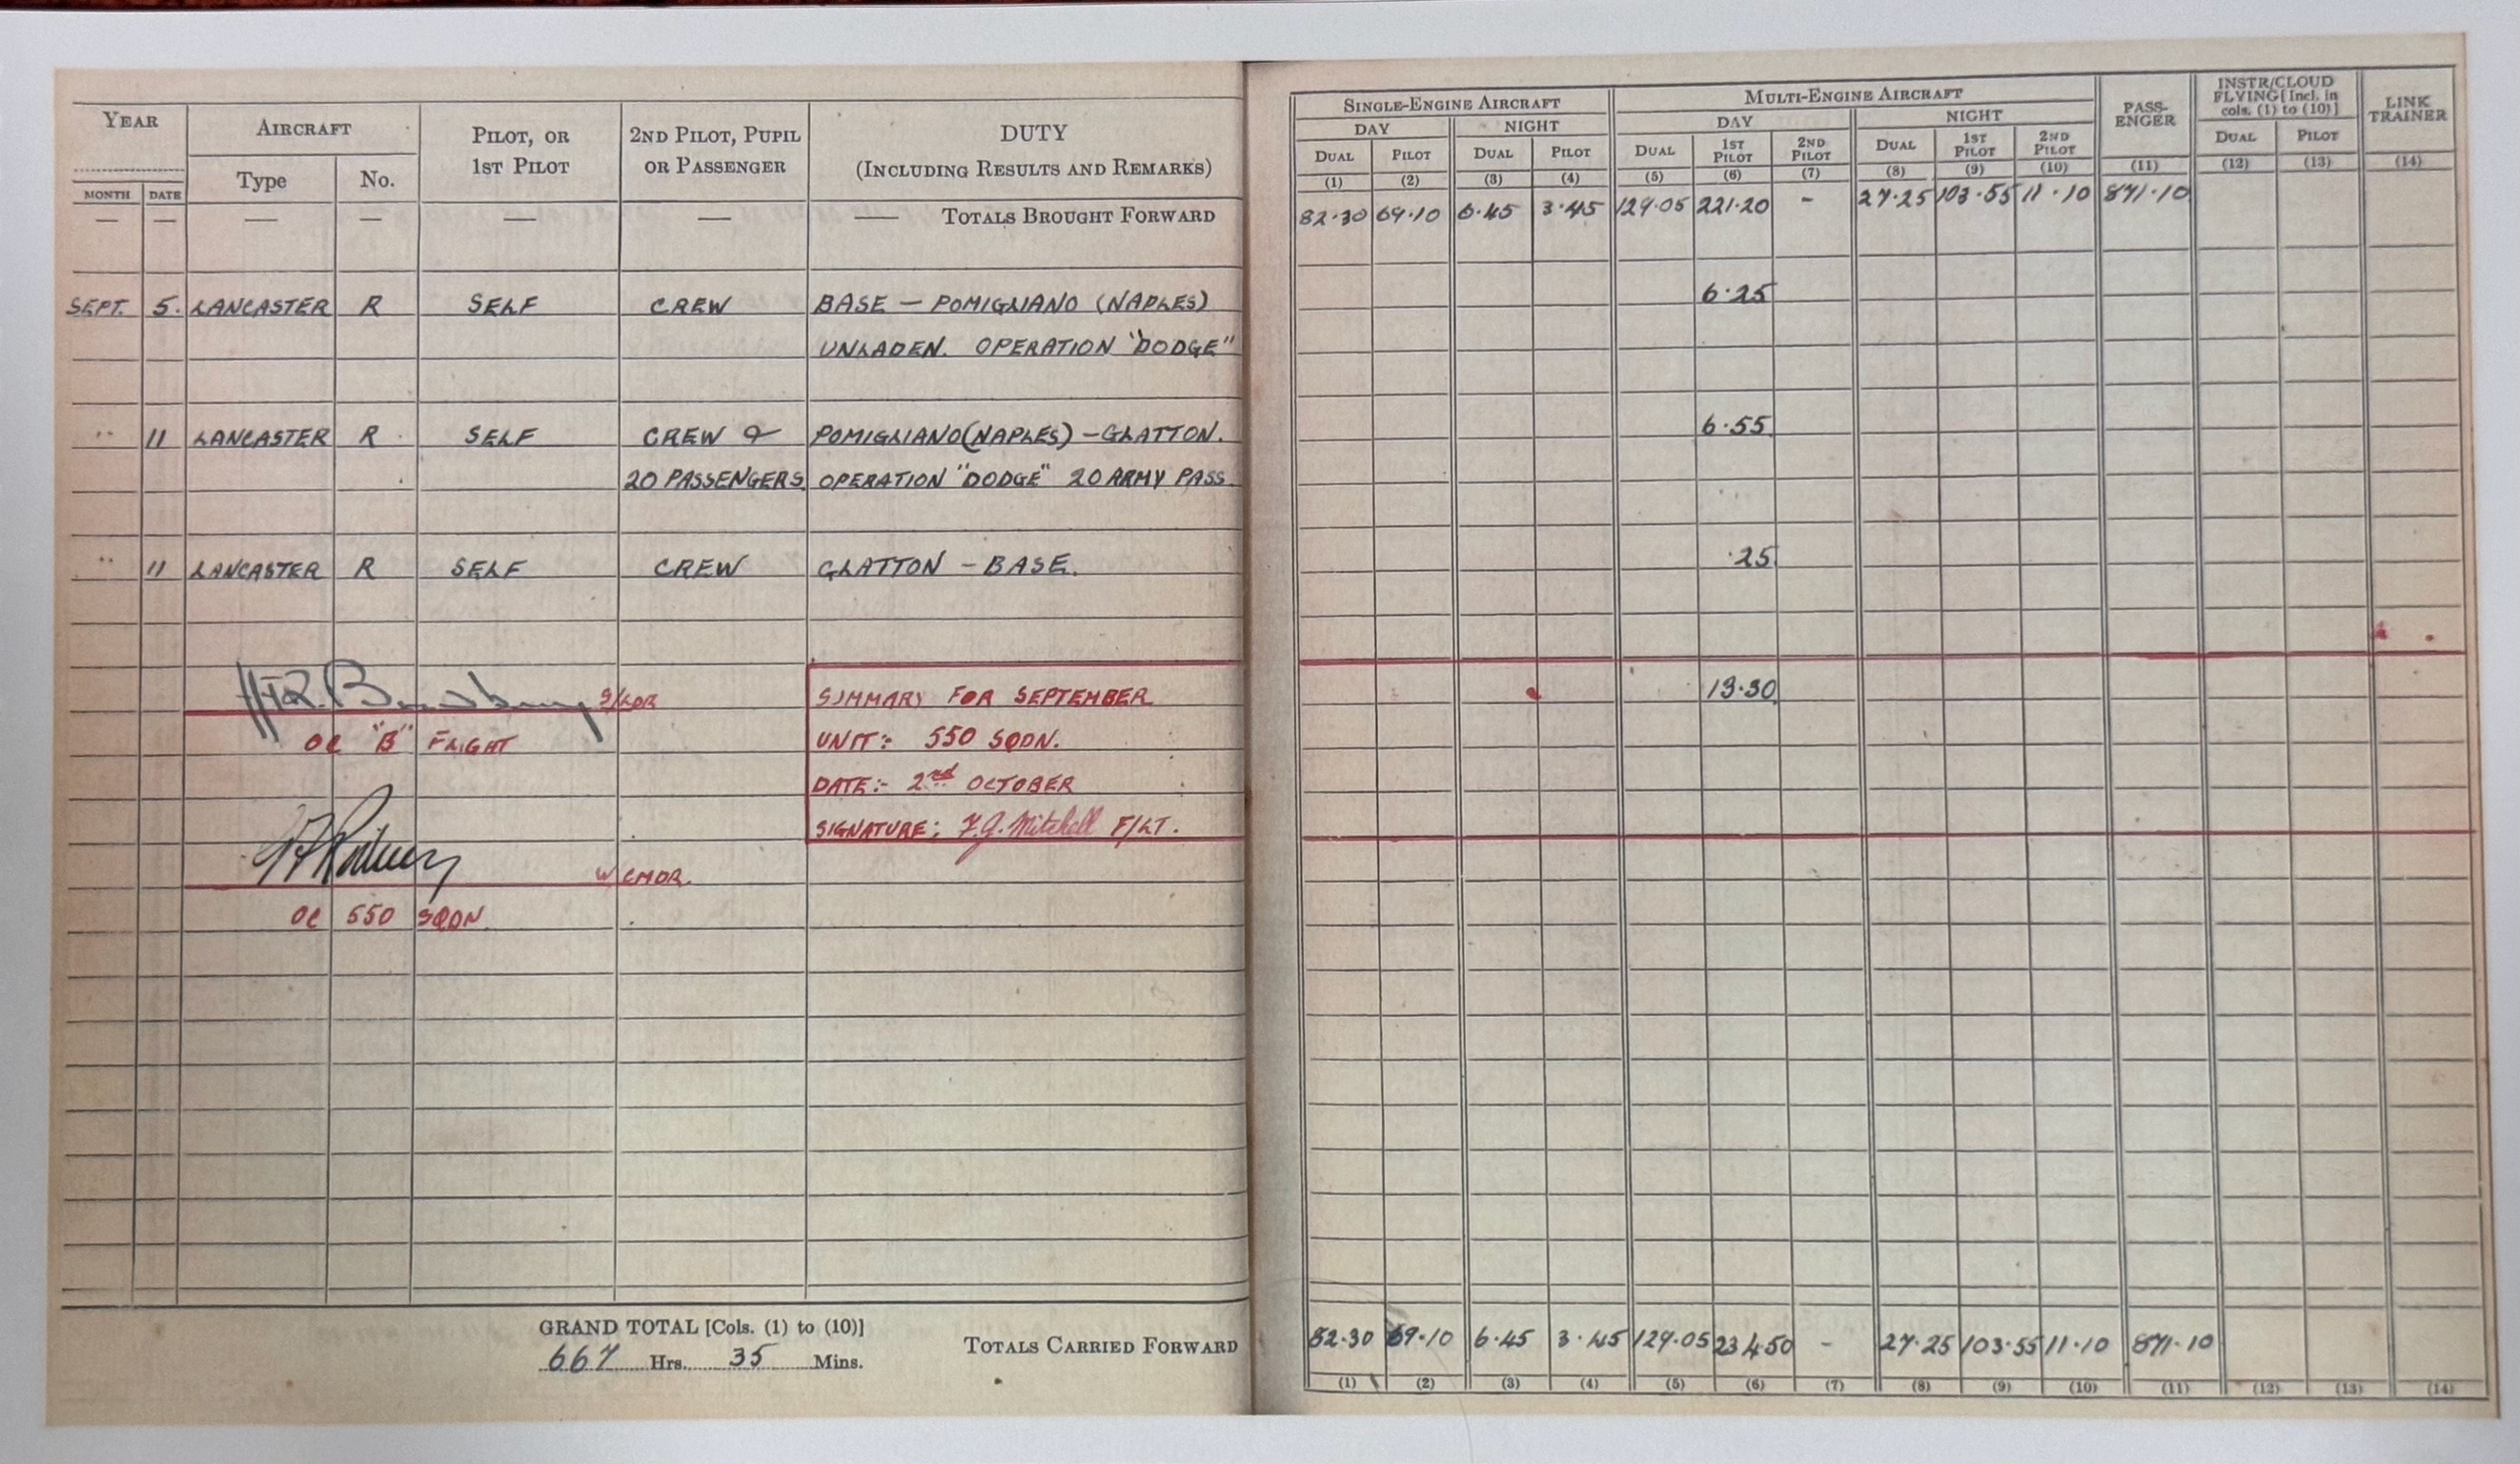 YEAR
AIRCRAFT
PILOT, OR
1ST PILOT
2ND PILOT, PUPIL
OR PASSENGER
DUTY
(INCLUDING RESULTS AND REMARKS)
MONTH DATE Type No.
SINGLE-ENGINE AIRCRAFT
MULTI-ENGINE AIRCRAFT
PASS-
ENGER
INSTR/CLOUD
FLYING [Incl. in
cols. (1) to (10)]
LINK
TRAINER
DAY NIGHT DAY NIGHT
DUAL PILOT DUAL PILOT DUAL 1ST PILOT 2ND PILOT DUAL 1ST PILOT 2ND PILOT DUAL PILOT
(1) (2) (3) (4) (5) (6) (7) (8) (9) (10) (11) (12) (13) (14)
— — — — — — — TOTALS BROUGHT FORWARD 82.30 69.10 6.45 3.45 129.05 221.20 - 27.25 103.55 11.10 871.10
SEPT. 5. LANCASTER R SELF CREW BASE — POMIGLIANO (NAPLES) 6.25
UNLADEN. OPERATION "DODGE"
" 11 LANCASTER R SELF CREW & POMIGLIANO (NAPLES) - GLATTON. 6.55
20 PASSENGERS OPERATION "DODGE" 20 ARMY PASS
" 11 LANCASTER R SELF CREW GLATTON - BASE. .25
S/LDR
SUMMARY FOR SEPTEMBER 13.30
OC "B" FLIGHT
UNIT:- 550 SQDN.
DATE:- 2nd OCTOBER
SIGNATURE: F.G. Mitchell F/LT.
W/CMDR.
OC 550 SQDN.
GRAND TOTAL [Cols. (1) to (10)]
667 Hrs. 35 Mins.
TOTALS CARRIED FORWARD 82.30 69.10 6.45 3.45 129.05 234.50 - 27.25 103.55 11.10 871.10
(1) (2) (3) (4) (5) (6) (7) (8) (9) (10) (11) (12) (13) (14)